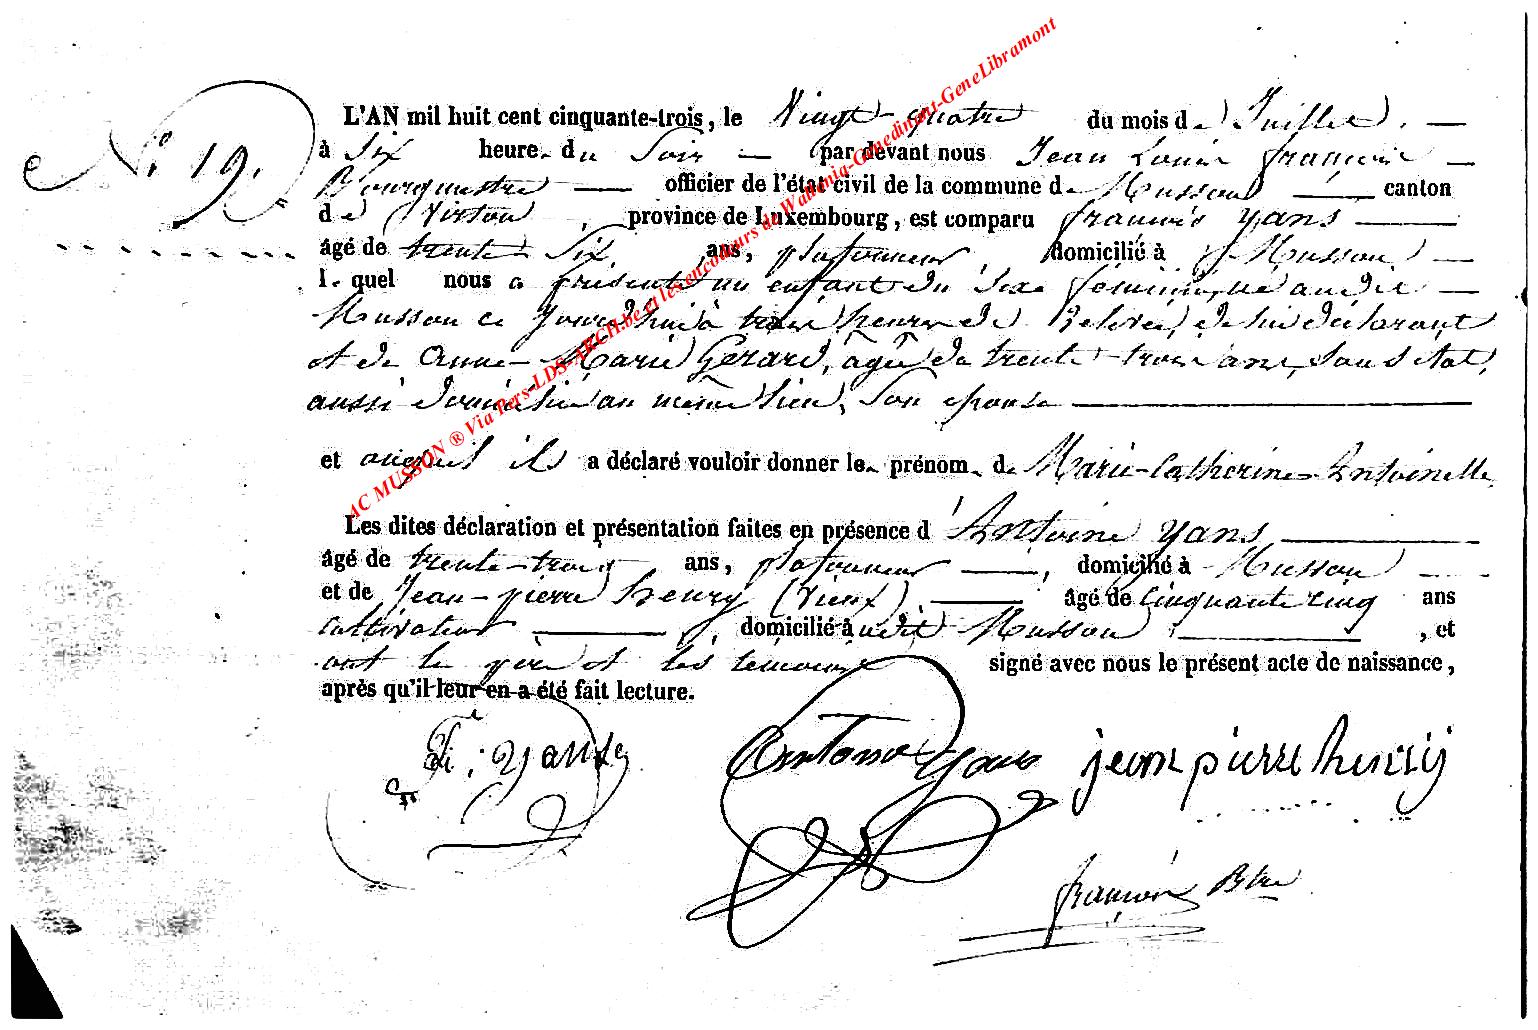 N° 19.
L'AN mil huit cent cinquante-trois, le Vingt-quatre du mois de Juillet.
à Six heure du Soir par devant nous Jean Louis François
Bourgmestre officier de l'état civil de la commune de Musson canton
de Virton, province de Luxembourg, est comparu François Yans
âgé de trente Six ans, plafonneur, domicilié à Musson
lequel nous a présenté un enfant du Sexe féminin, né audit
Musson ce jourd'hui à trois heures de Relevée, de lui déclarant
et de Anne-Marie Gérard, âgée de trente-trois ans, Sans état,
aussi domiciliée au même lieu, Son épouse
et auquel il a déclaré vouloir donner le prénom de Marie-Catherine-Antoinette.
Les dites déclaration et présentation faites en présence d'Antoine Yans
âgé de trente-trois ans, plafonneur, domicilié à Musson
et de Jean-pierre henry (Vieux), âgé de Cinquante cinq ans
Cultivateur, domicilié audit Musson, et
ont le père et les témoins signé avec nous le présent acte de naissance,
après qu'il leur en a été fait lecture.
F. Yans Antone Yans jean pierre henry
françois Btre
AC MUSSON ® Via Pers-LDS-ARCH.be et les encodeurs de Wallonia-Genedinant-GeneLibramont